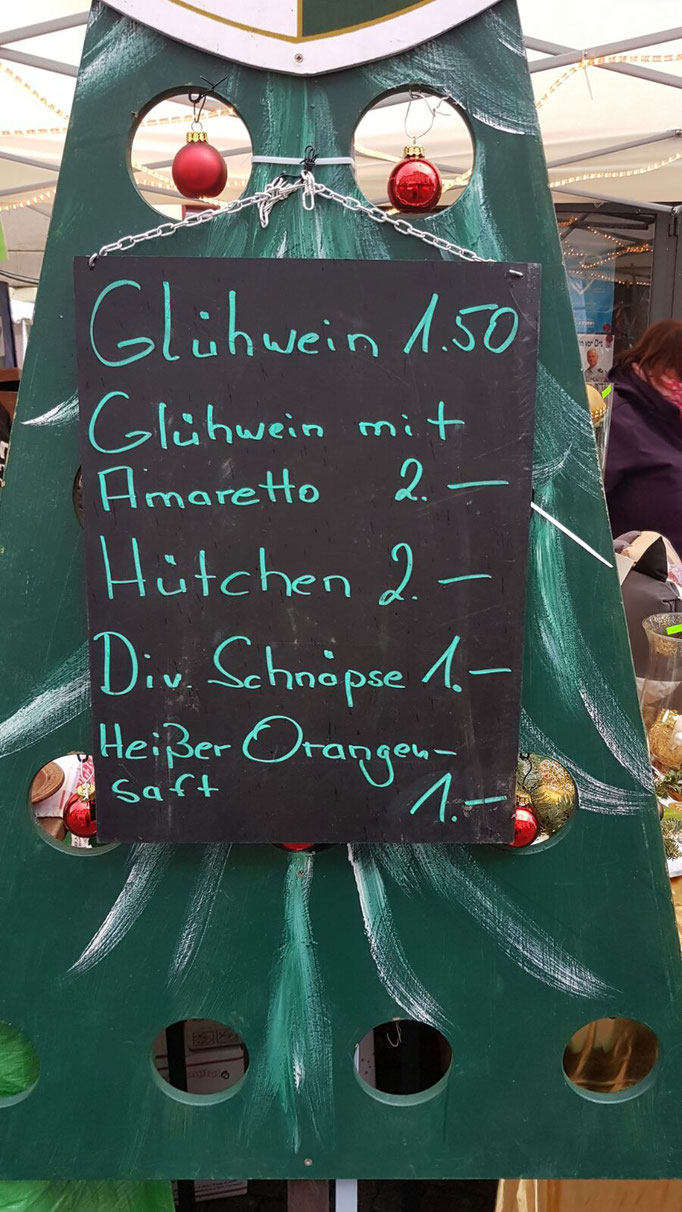 Glühwein 1.50
Glühwein mit
Amaretto 2.—
Hütchen 2.—
Div. Schnäpse 1.—
Heißer Orangen-
saft 1.—